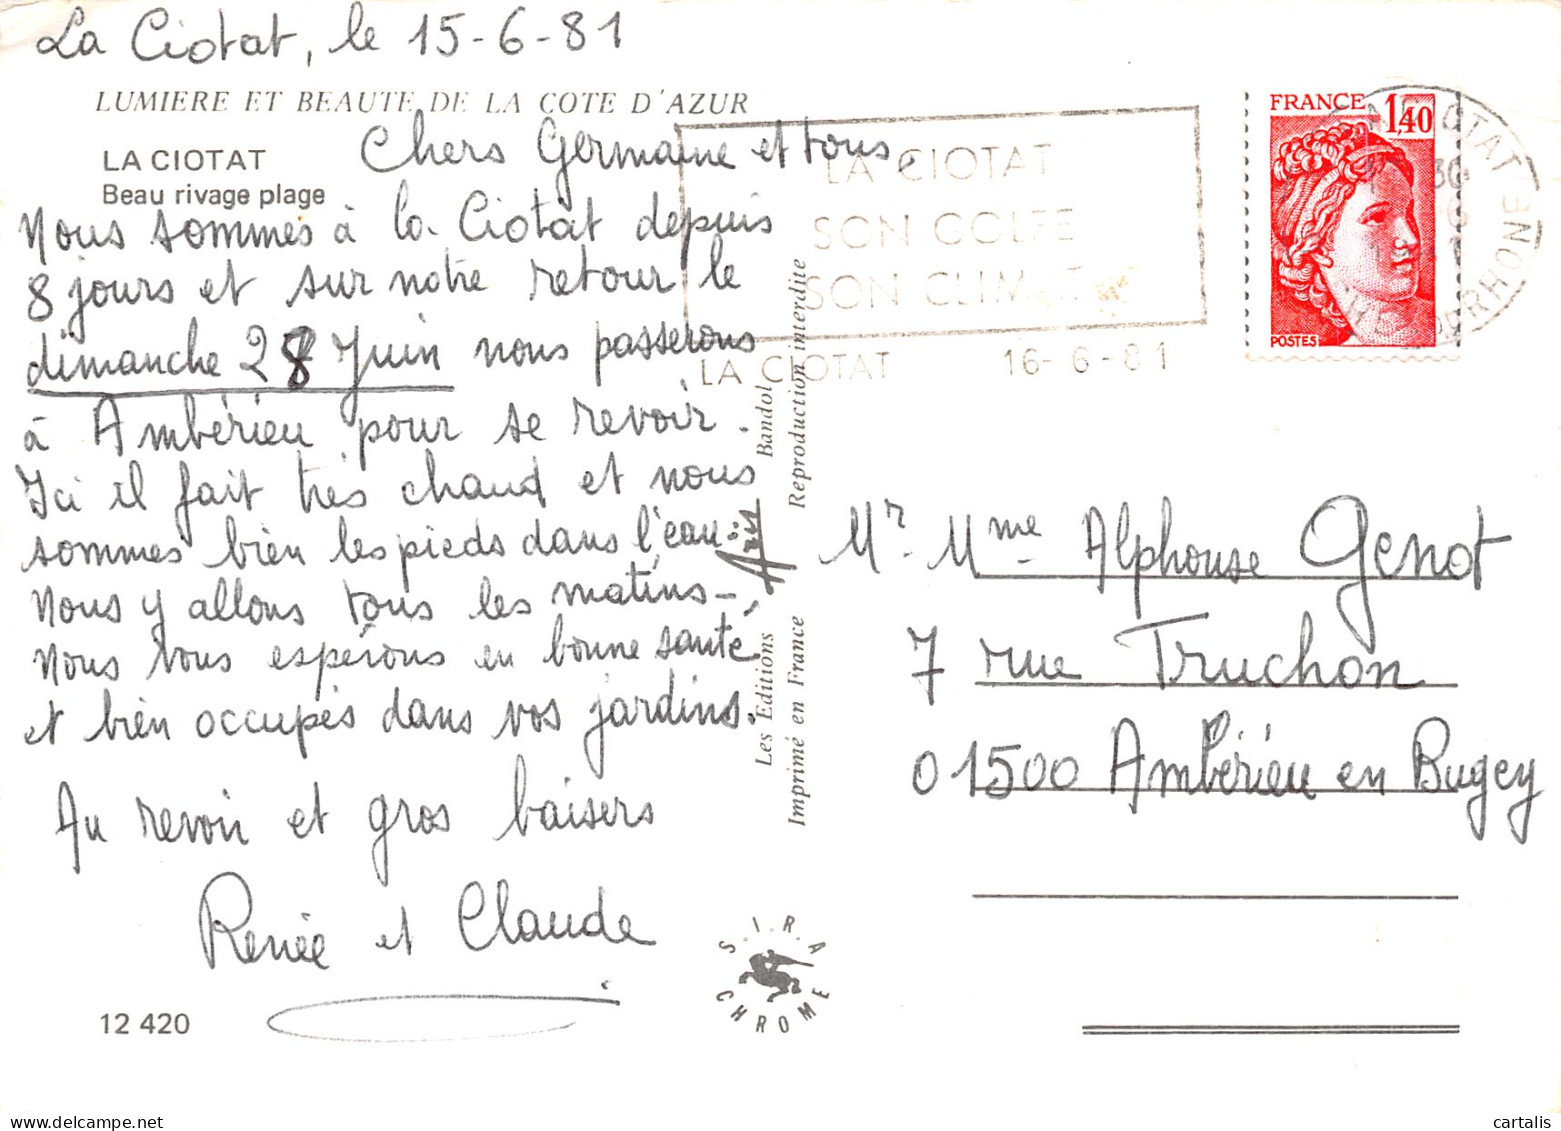 La Ciotat, le 15-6-81
LUMIERE ET BEAUTE DE LA COTE D'AZUR
LA CIOTAT
Beau rivage plage
Chers Germaine et tous,
Nous sommes à la Ciotat depuis
8 jours et sur notre retour le
dimanche 28 Juin nous passerons
à Ambérieu pour se revoir.
Ici il fait très chaud et nous
sommes bien les pieds dans l'eau.
Nous y allons tous les matins-,
Nous vous espérons en bonne santé
et bien occupés dans vos jardins.
Au revoir et gros baisers
Renée et Claude
12 420
Les Editions Aris Bandol
Imprimé en France Reproduction interdite
S.I.R.A
CHROME
LA CIOTAT
SON GOLFE
SON CLIMAT
LA CIOTAT 16-6-81
FRANCE 1,40
POSTES
CIOTAT
RHONE
Mr. Mme Alphonse Genot
7 rue Truchon
01500 Ambérieu en Bugey
cartalis